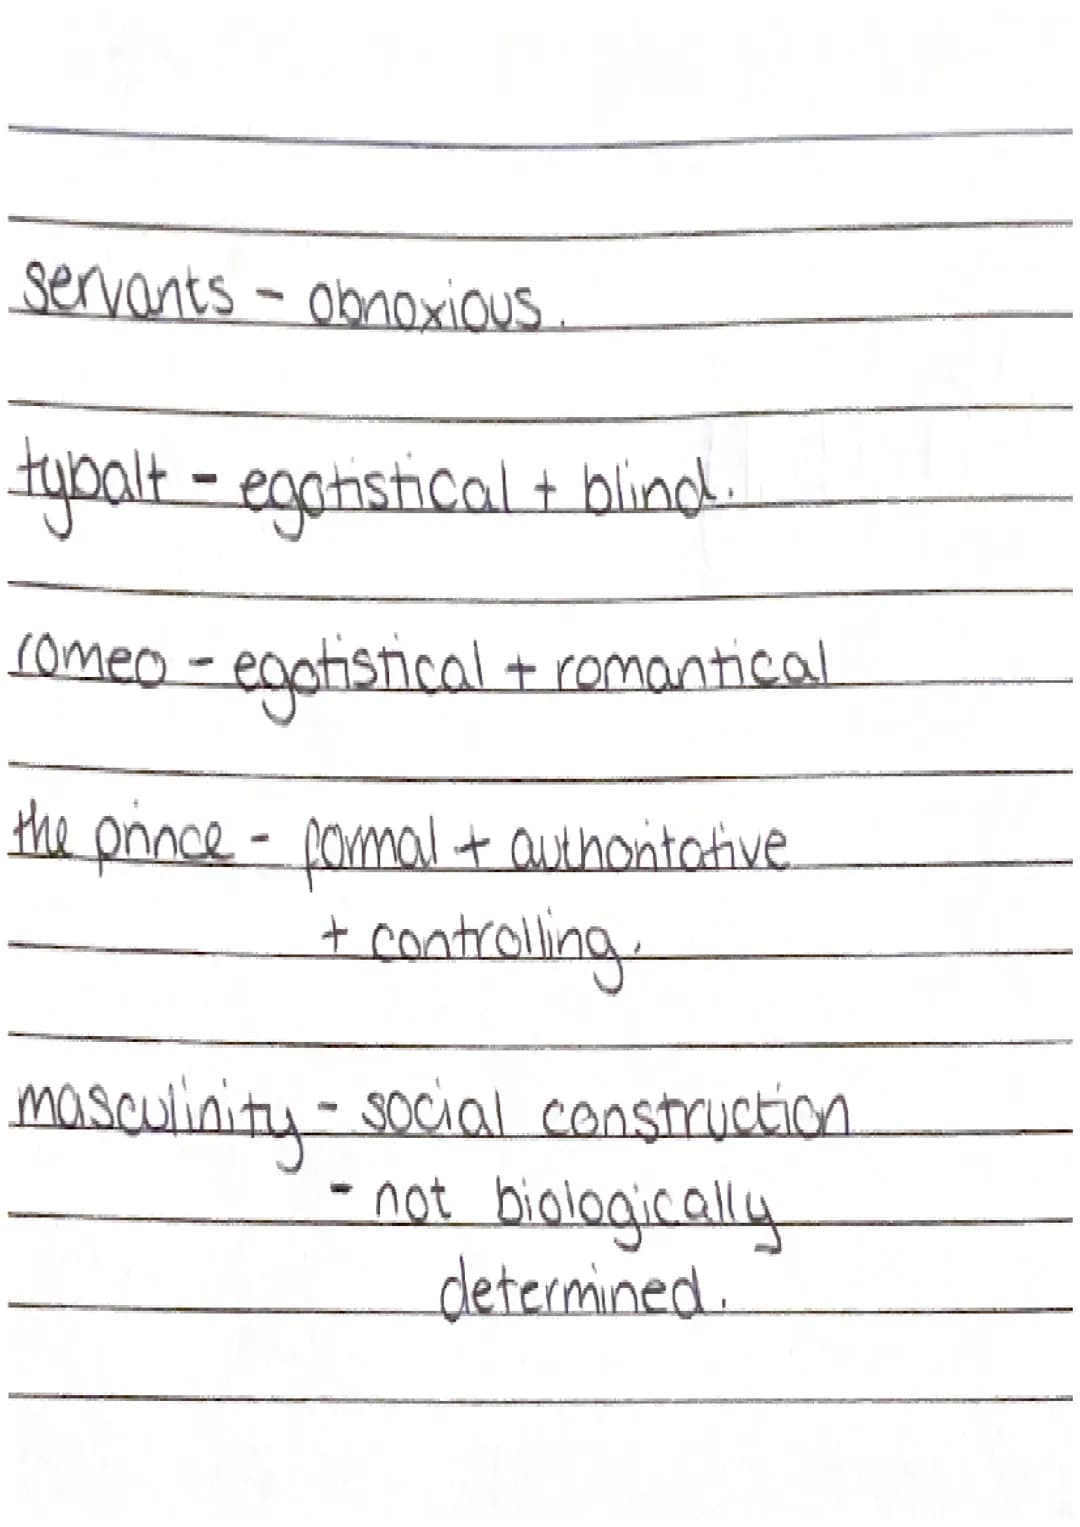 servants - obnoxious.
tybalt - egotistical + blind.
romeo - egotistical + romantical
the prince - formal + authoritative
+ controlling.
masculinity - social construction
- not biologically
determined.